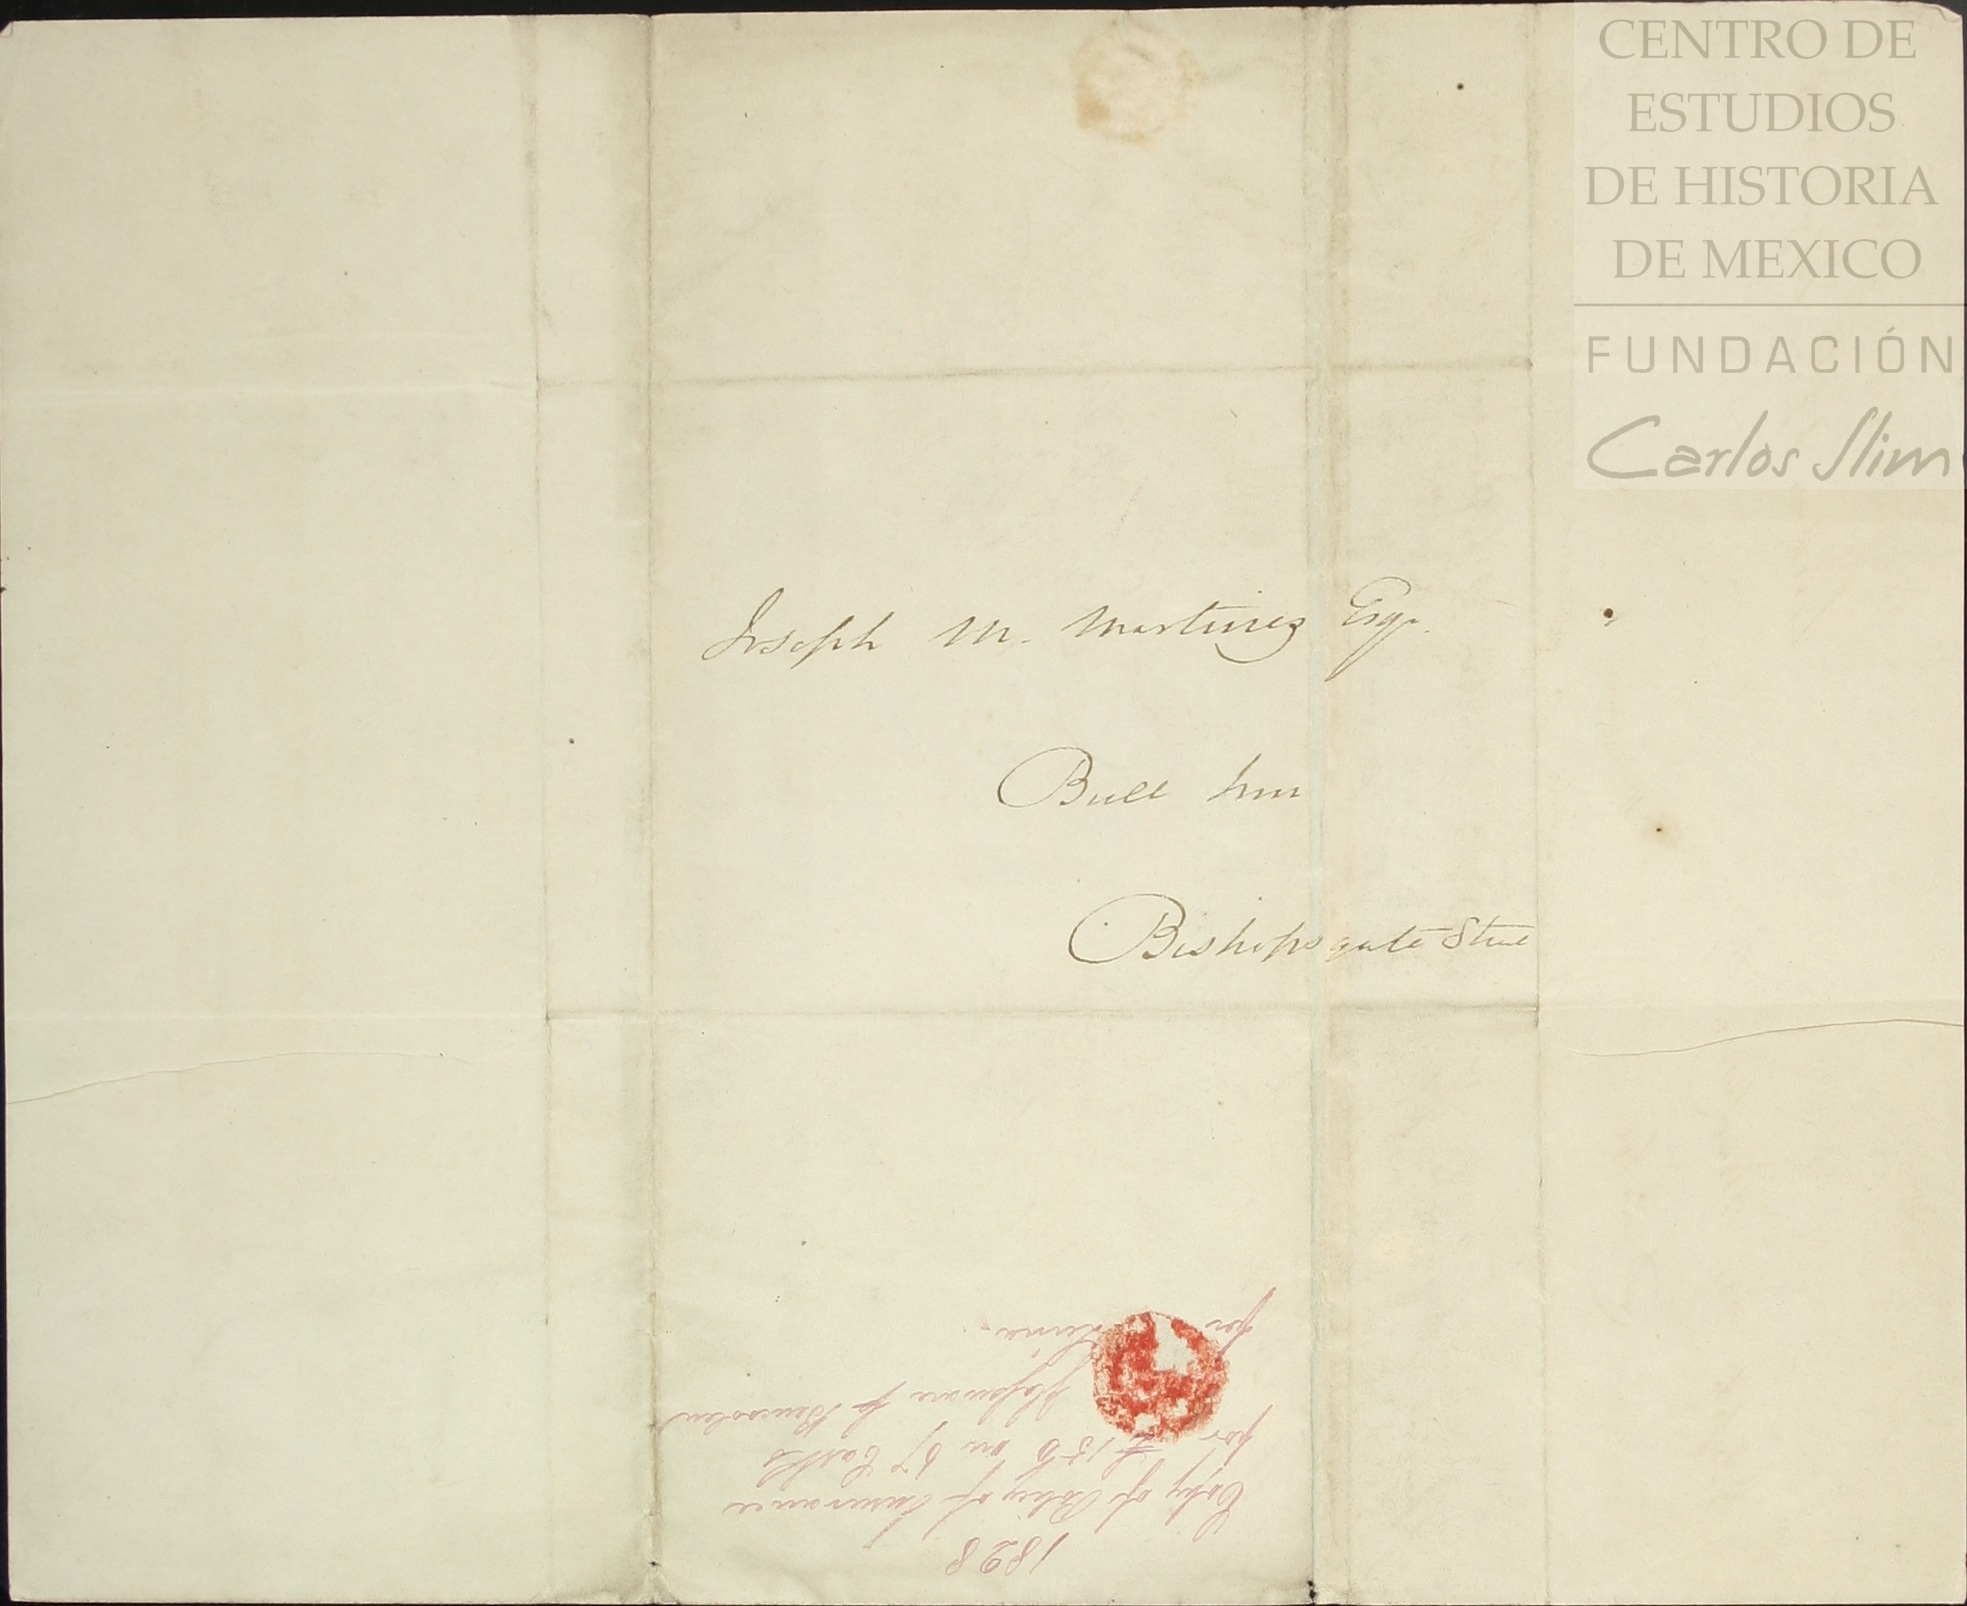 CENTRO DE
ESTUDIOS
DE HISTORIA
DE MEXICO
FUNDACIÓN
Carlos Slim
Joseph M. Martinez Esqr.
Bull Inn
Bishopsgate Street
1828
Copy of Policy of Insurance
por £156 on 67 Casks
for Bencoolen
por